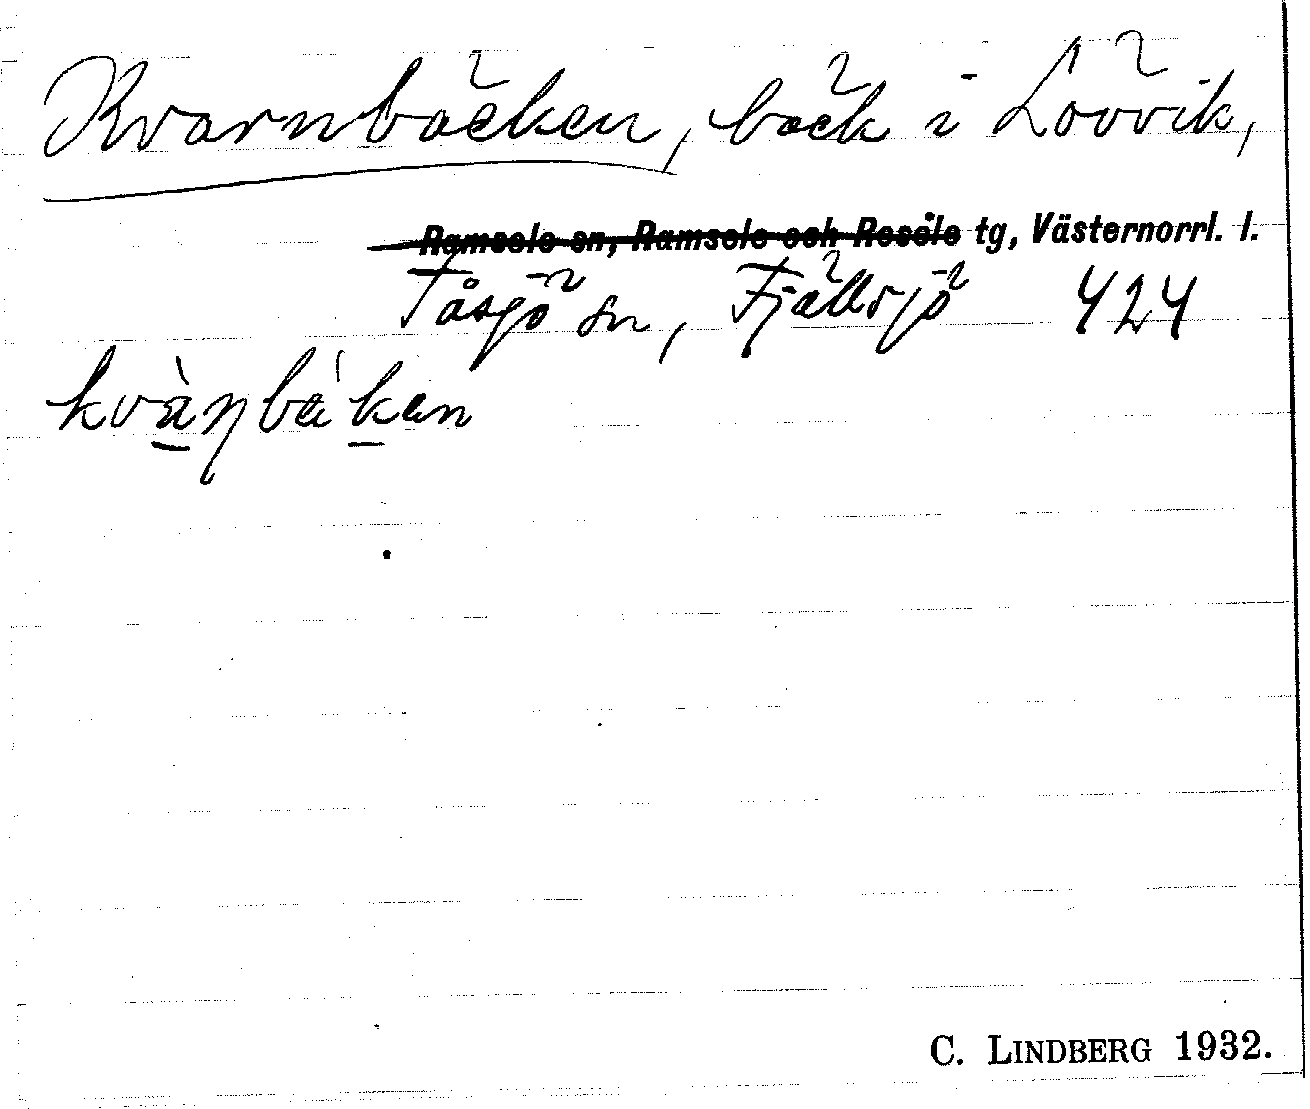 Kvarnbäcken, bäck i Lövvik,
Ramsele sn, Ramsele och Resele tg, Västernorrl. l.
Tåsjö sn, Fjällsjö 424
kvàṇbä̀kan
C. LINDBERG 1932.